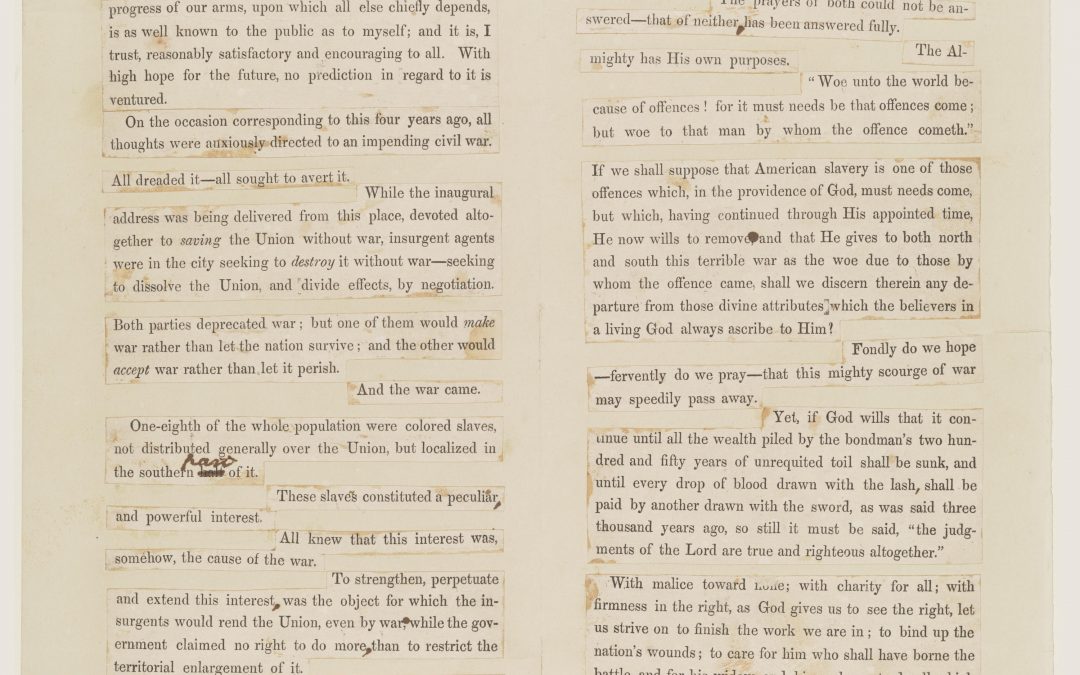 progress of our arms, upon which all else chiefly depends,
is as well known to the public as to myself; and it is, I
trust, reasonably satisfactory and encouraging to all. With
high hope for the future, no prediction in regard to it is
ventured.
On the occasion corresponding to this four years ago, all
thoughts were anxiously directed to an impending civil war.
All dreaded it—all sought to avert it.
While the inaugural
address was being delivered from this place, devoted alto-
gether to saving the Union without war, insurgent agents
were in the city seeking to destroy it without war—seeking
to dissolve the Union, and divide effects, by negotiation.
Both parties deprecated war; but one of them would make
war rather than let the nation survive; and the other would
accept war rather than let it perish.
And the war came.
One-eighth of the whole population were colored slaves,
not distributed generally over the Union, but localized in
part
the southern half of it.
These slaves constituted a peculiar,
and powerful interest.
All knew that this interest was,
somehow, the cause of the war.
To strengthen, perpetuate
and extend this interest, was the object for which the in-
surgents would rend the Union, even by war, while the gov-
ernment claimed no right to do more, than to restrict the
territorial enlargement of it.
The prayers of both could not be an-
swered—that of neither, has been answered fully.
The Al-
mighty has His own purposes.
"Woe unto the world be-
cause of offences! for it must needs be that offences come;
but woe to that man by whom the offence cometh."
If we shall suppose that American slavery is one of those
offences which, in the providence of God, must needs come,
but which, having continued through His appointed time,
He now wills to remove, and that He gives to both north
and south this terrible war as the woe due to those by
whom the offence came, shall we discern therein any de-
parture from those divine attributes, which the believers in
a living God always ascribe to Him?
Fondly do we hope
—fervently do we pray—that this mighty scourge of war
may speedily pass away.
Yet, if God wills that it con-
tinue until all the wealth piled by the bondman's two hun-
dred and fifty years of unrequited toil shall be sunk, and
until every drop of blood drawn with the lash, shall be
paid by another drawn with the sword, as was said three
thousand years ago, so still it must be said, "the judg-
ments of the Lord are true and righteous altogether."
With malice toward none; with charity for all; with
firmness in the right, as God gives us to see the right, let
us strive on to finish the work we are in; to bind up the
nation's wounds; to care for him who shall have borne the
battle, and for his widow, and his